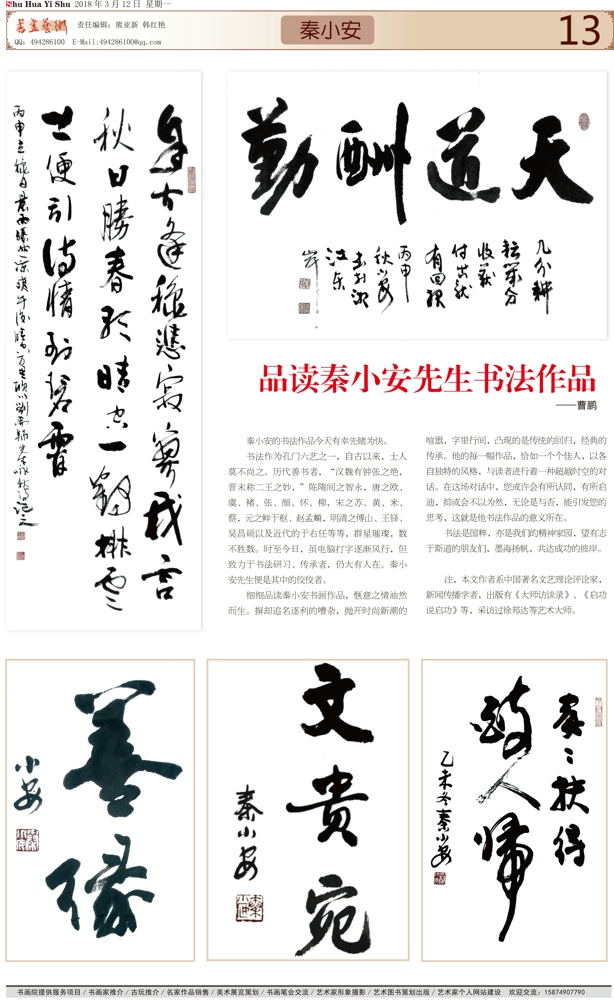 Shu Hua Yi Shu 2018年3月12日 星期一
书画艺术
责任编辑：熊亚新 韩红艳
QQ：494286100 E-Mail:494286100@qq.com
秦小安
13
自古逢秋悲寂寥我言
秋日胜春朝晴空一鹤排云
上便引诗情到碧霄
天道酬勤
几分耕
耘几分
收获
付出就
有回报
丙申
秋小安
书于湖
江东
岸
品读秦小安先生书法作品
——曹鹏
秦小安的书法作品今天有幸先睹为快。
书法作为孔门六艺之一，自古以来，士人
莫不尚之。历代善书者，“汉魏有钟张之绝，
晋末称二王之妙，”陈隋间之智永，唐之欧、
虞、褚、张、颜、怀、柳，宋之苏、黄、米、
蔡，元之鲜于枢、赵孟頫，明清之傅山、王铎、
吴昌硕以及近代的于右任等等，群星璀璨，数
不胜数。时至今日，虽电脑打字逐渐风行，但
致力于书法研习、传承者，仍大有人在。秦小
安先生便是其中的佼佼者。
细细品读秦小安书画作品，惬意之情油然
而生。摒却追名逐利的嘈杂，抛开时尚新潮的
喧嚣，字里行间，凸现的是传统的回归，经典的
传承。他的每一幅作品，恰如一个个佳人，以各
自独特的风格，与读者进行着一种超越时空的对
话。在这场对话中，您或许会有所认同，有所启
迪，抑或会不以为然，无论是与否，能引发您的
思考，这就是他书法作品的意义所在。
书法是国粹，亦是我们的精神家园，望有志
于斯道的朋友们，墨海扬帆，共达成功的彼岸。
注，本文作者系中国著名文艺理论评论家，
新闻传播学者，出版有《大师访谈录》、《启功
说启功》等，采访过徐邦达等艺术大师。
善缘
小安
文贵宛
秦小安
家家扶得
醉人归
乙未冬秦小安
书画院提供服务项目 / 书画家推介 / 古玩推介 / 名家作品销售 / 美术展览策划 / 书画笔会交流 / 艺术家形象摄影 / 艺术图书策划出版 / 艺术家个人网站建设 欢迎交流：15874907790